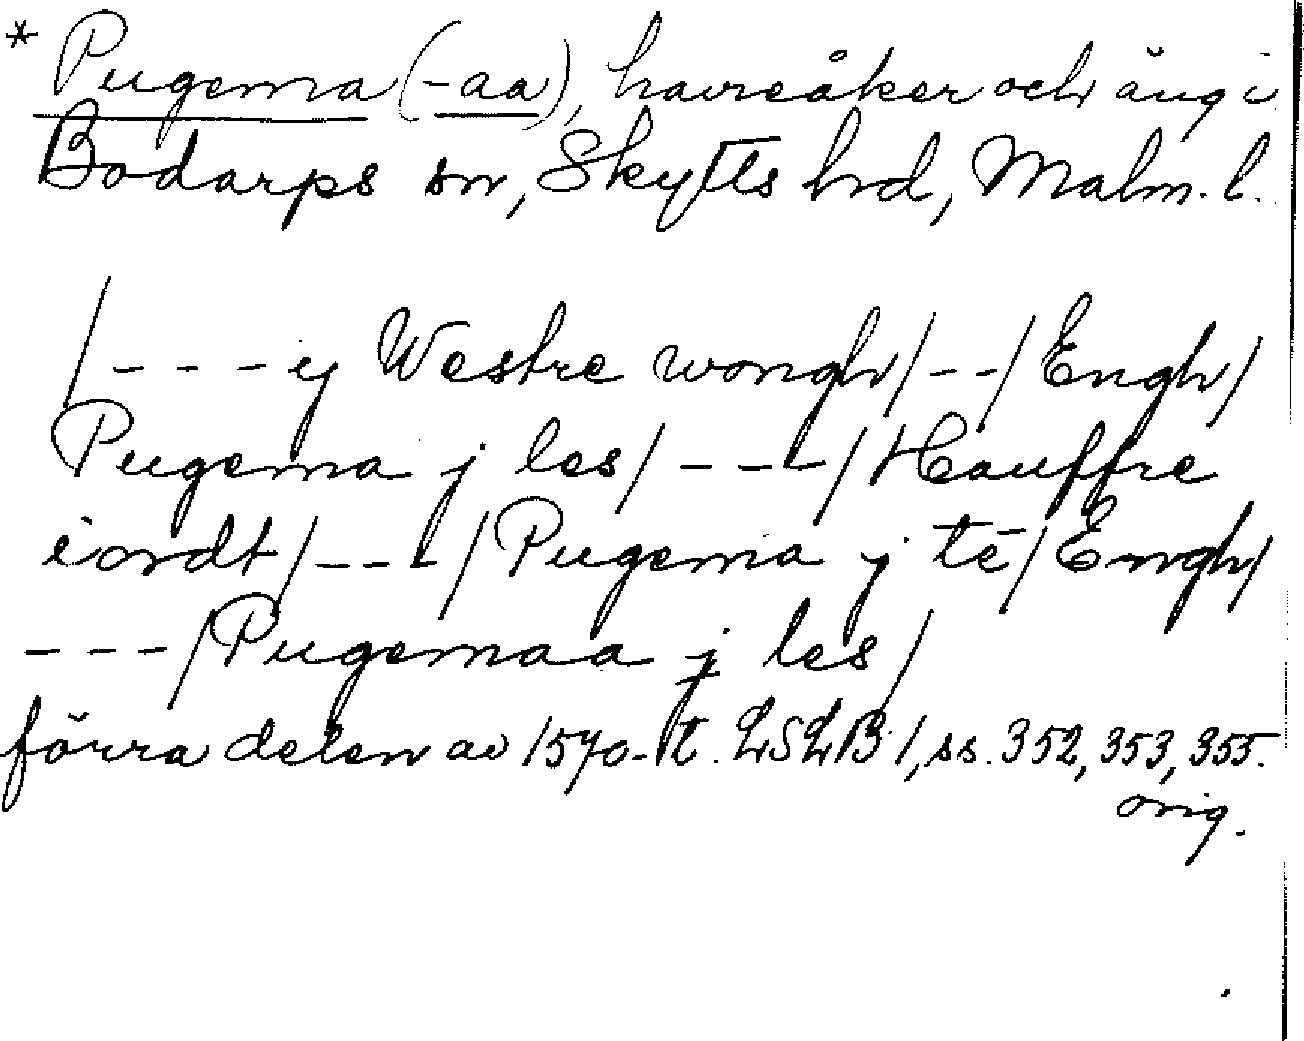 * Pugema (-aa), havreåker och äng i
Bodarps sn, Skytts hrd, Malm. l.
/---ij Westre wongh/--/Engh/
Pugema j les/---/Hauffre
iordt/---/Pugema j te/Engh/
---/Pugemaa j les/
förra delen av 1570-t. LSLB 1, ss. 352, 353, 355.
orig.